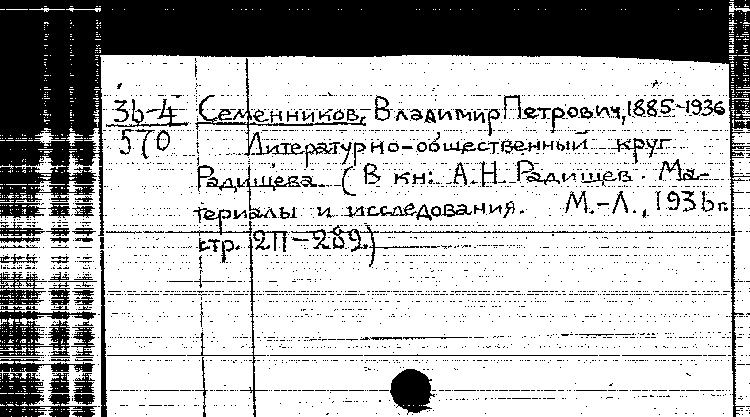 36-4 Семенников, Владимир Петрович, 1885-1936
570 Литературно-общественный круг
Радищева. (В кн: А.Н. Радищев. Ма-
териалы и исследования. М.-Л., 1936г.
стр. 211-289.)